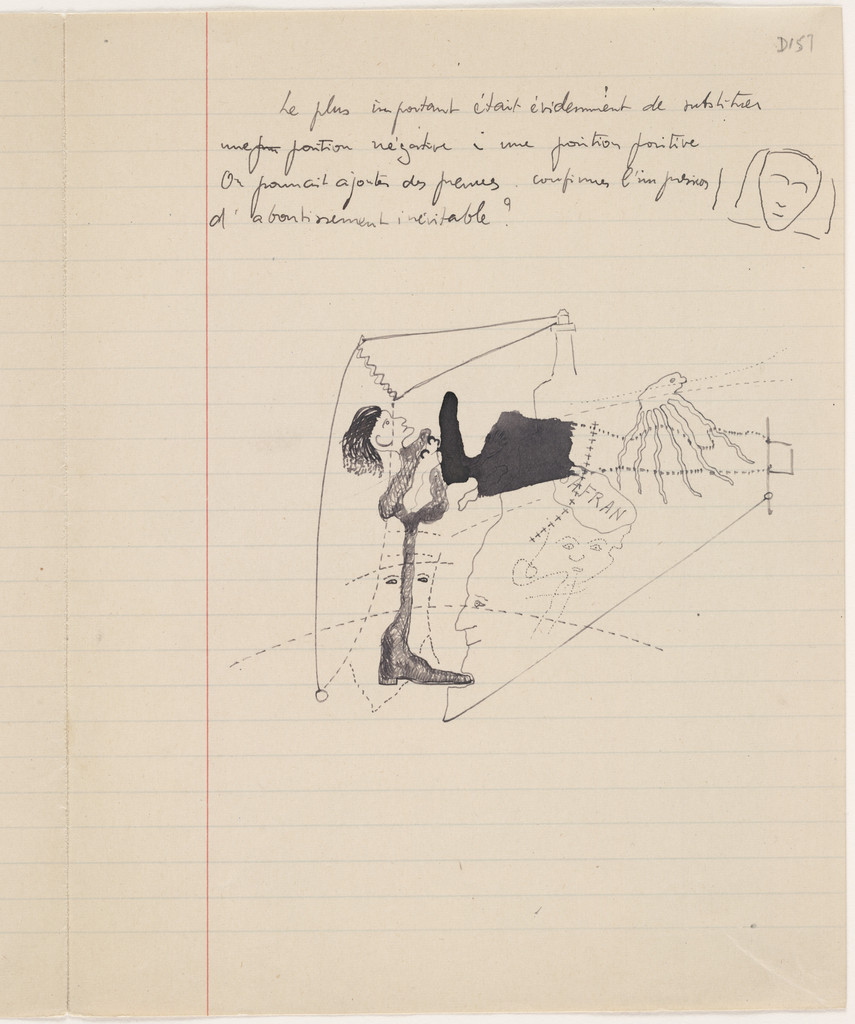 D157
Le plus important était évidemment de substituer
une position négative à une position positive
On pourrait ajouter des preuves. confirmer l'impression
d'aboutissement inévitable ?
SAFRAN